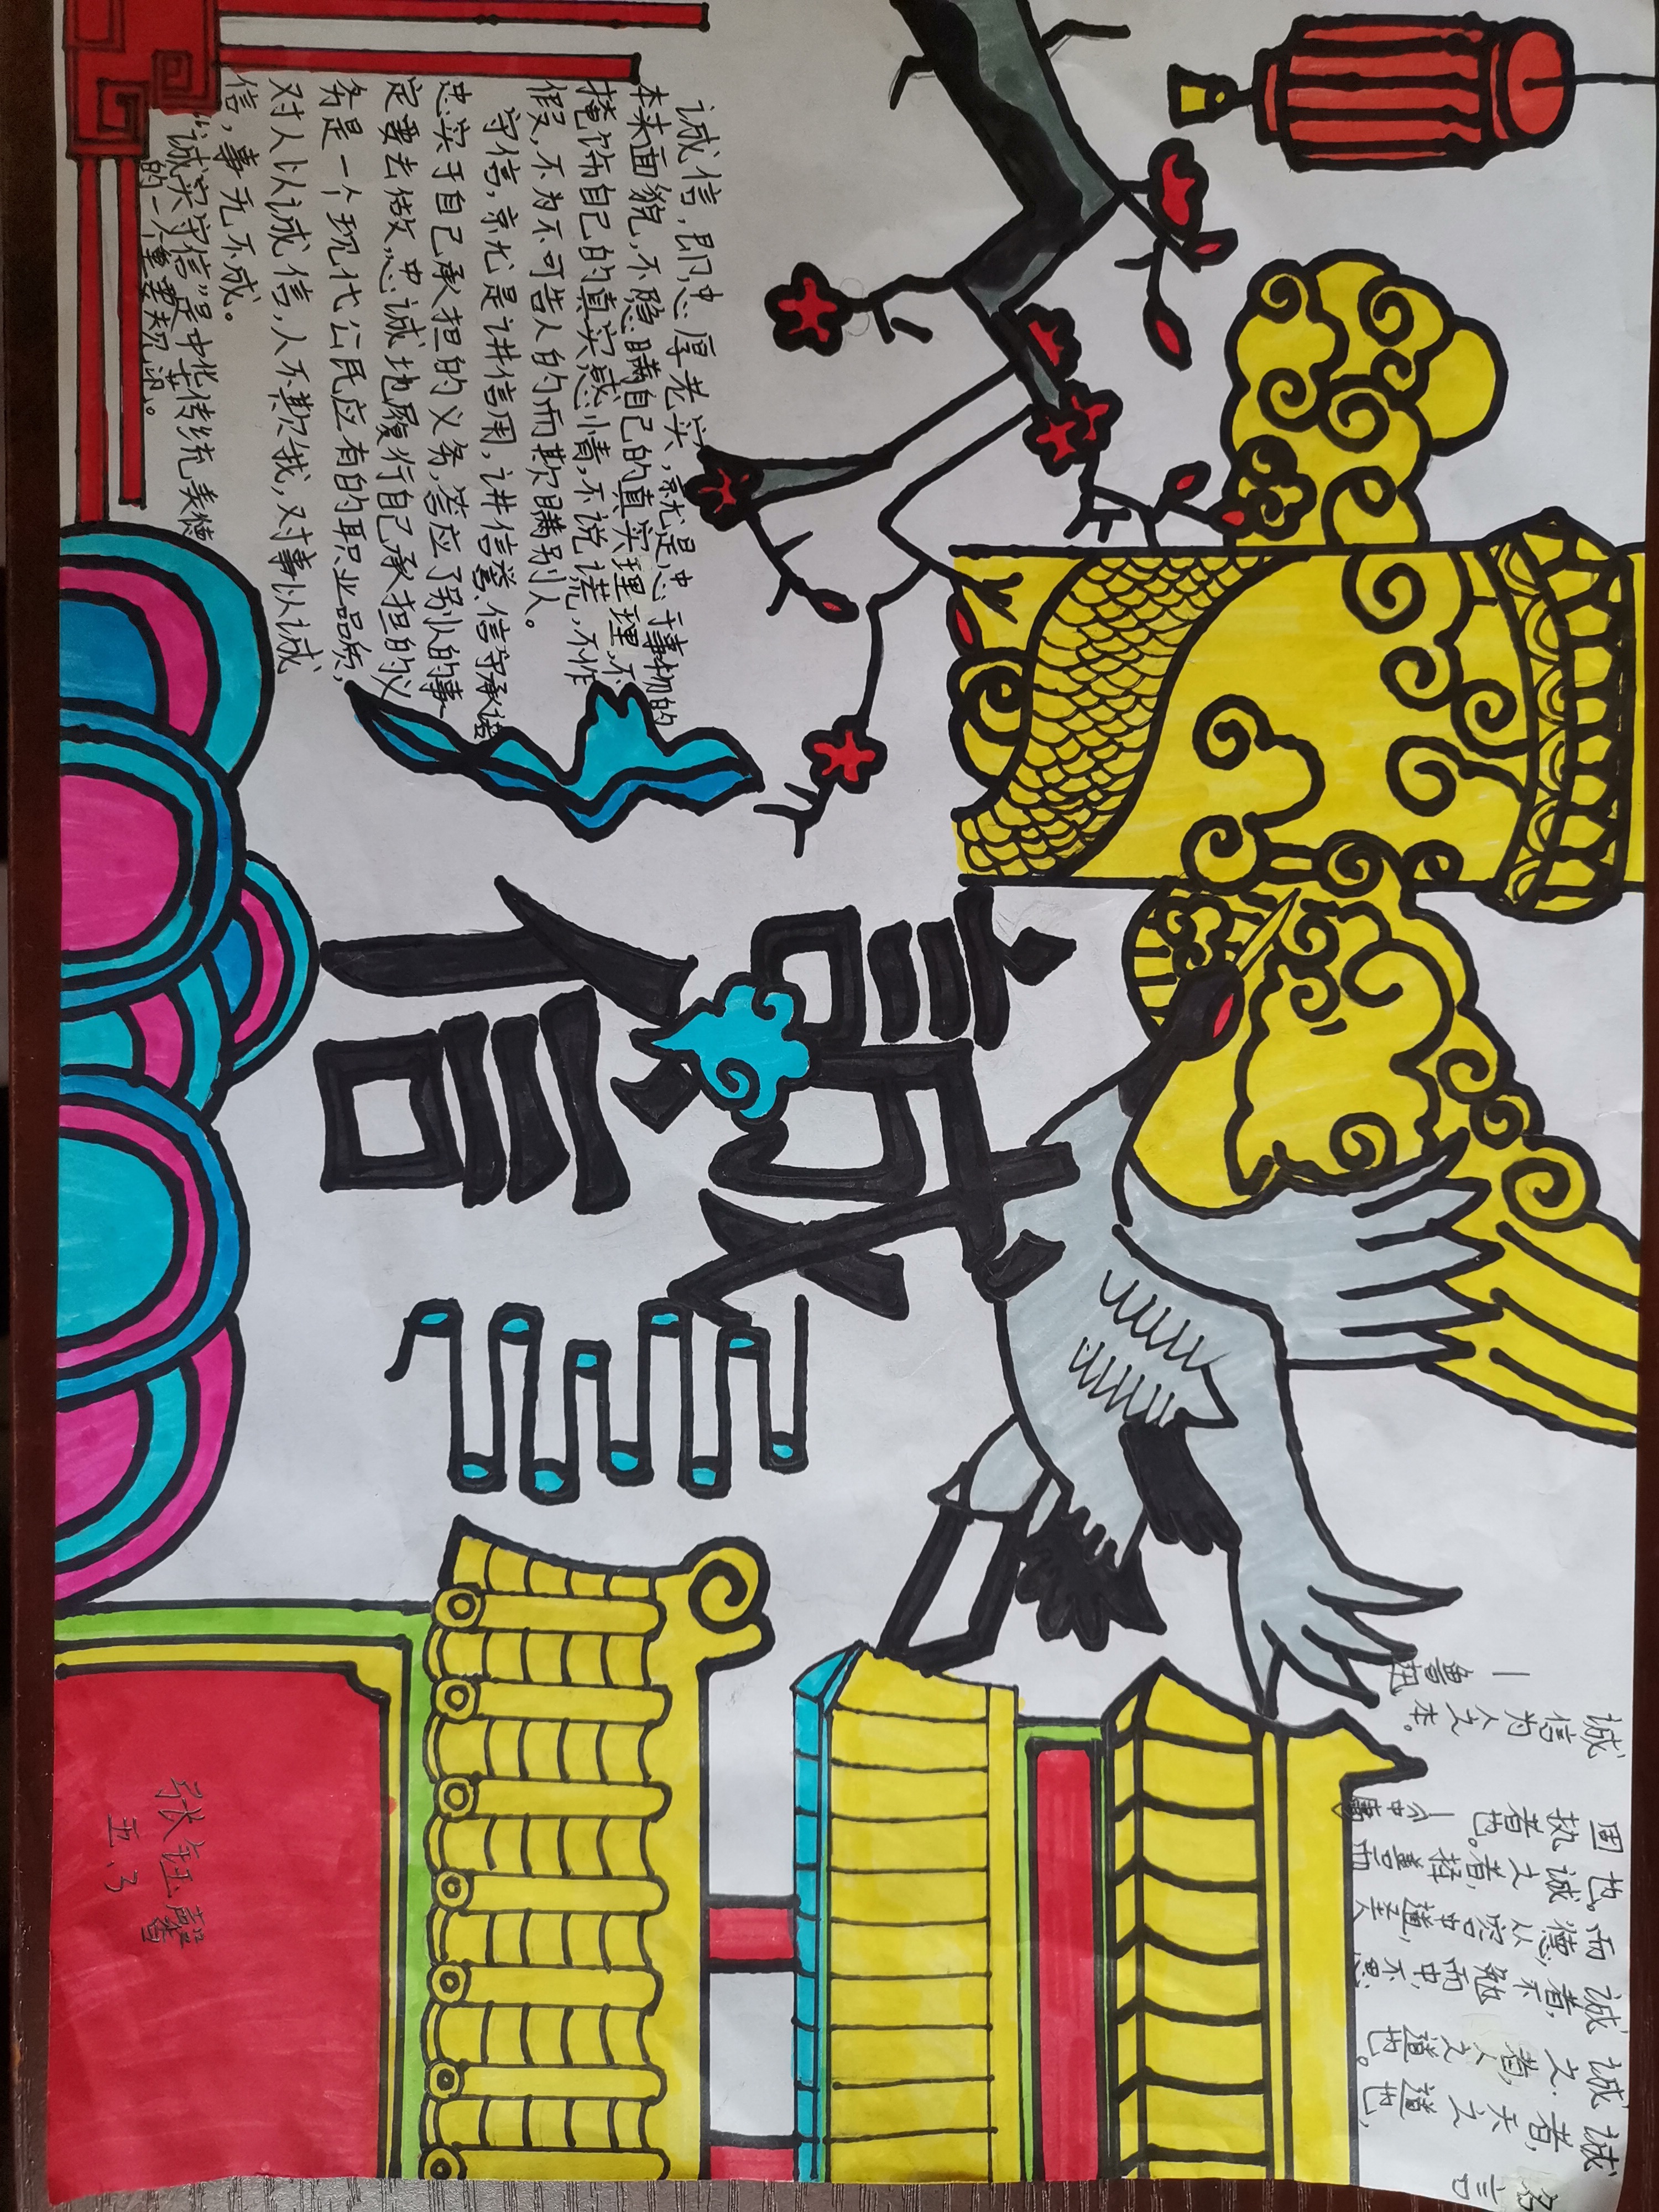 诚信
诚信，即忠厚老实，就是忠于事物的
本来面貌，不隐瞒自己的真实理理，不
掩饰自己的真实感情，不说谎，不作
假，不为不可告人的而欺瞒别人。
守信，就是讲信用，讲信誉、信守承诺
忠实于自己承担的义务，答应了别人的事一
定要去做，忠诚地履行自己承担的义
务是一个现代公民应有的职业品质，
对人以诚信，人不欺我，对事以诚
信，事无不成。
“诚实守信”是中华传统美德
的一个重要规范。
名言
诚者，天之道也，
诚之者，人之道也。
诚者，不勉而中，不思
而德，从容中道，圣人
也。诚之者，择善而
固执着也。
—《中庸
诚信为人之本。
—鲁迅
张钰馨
五、3